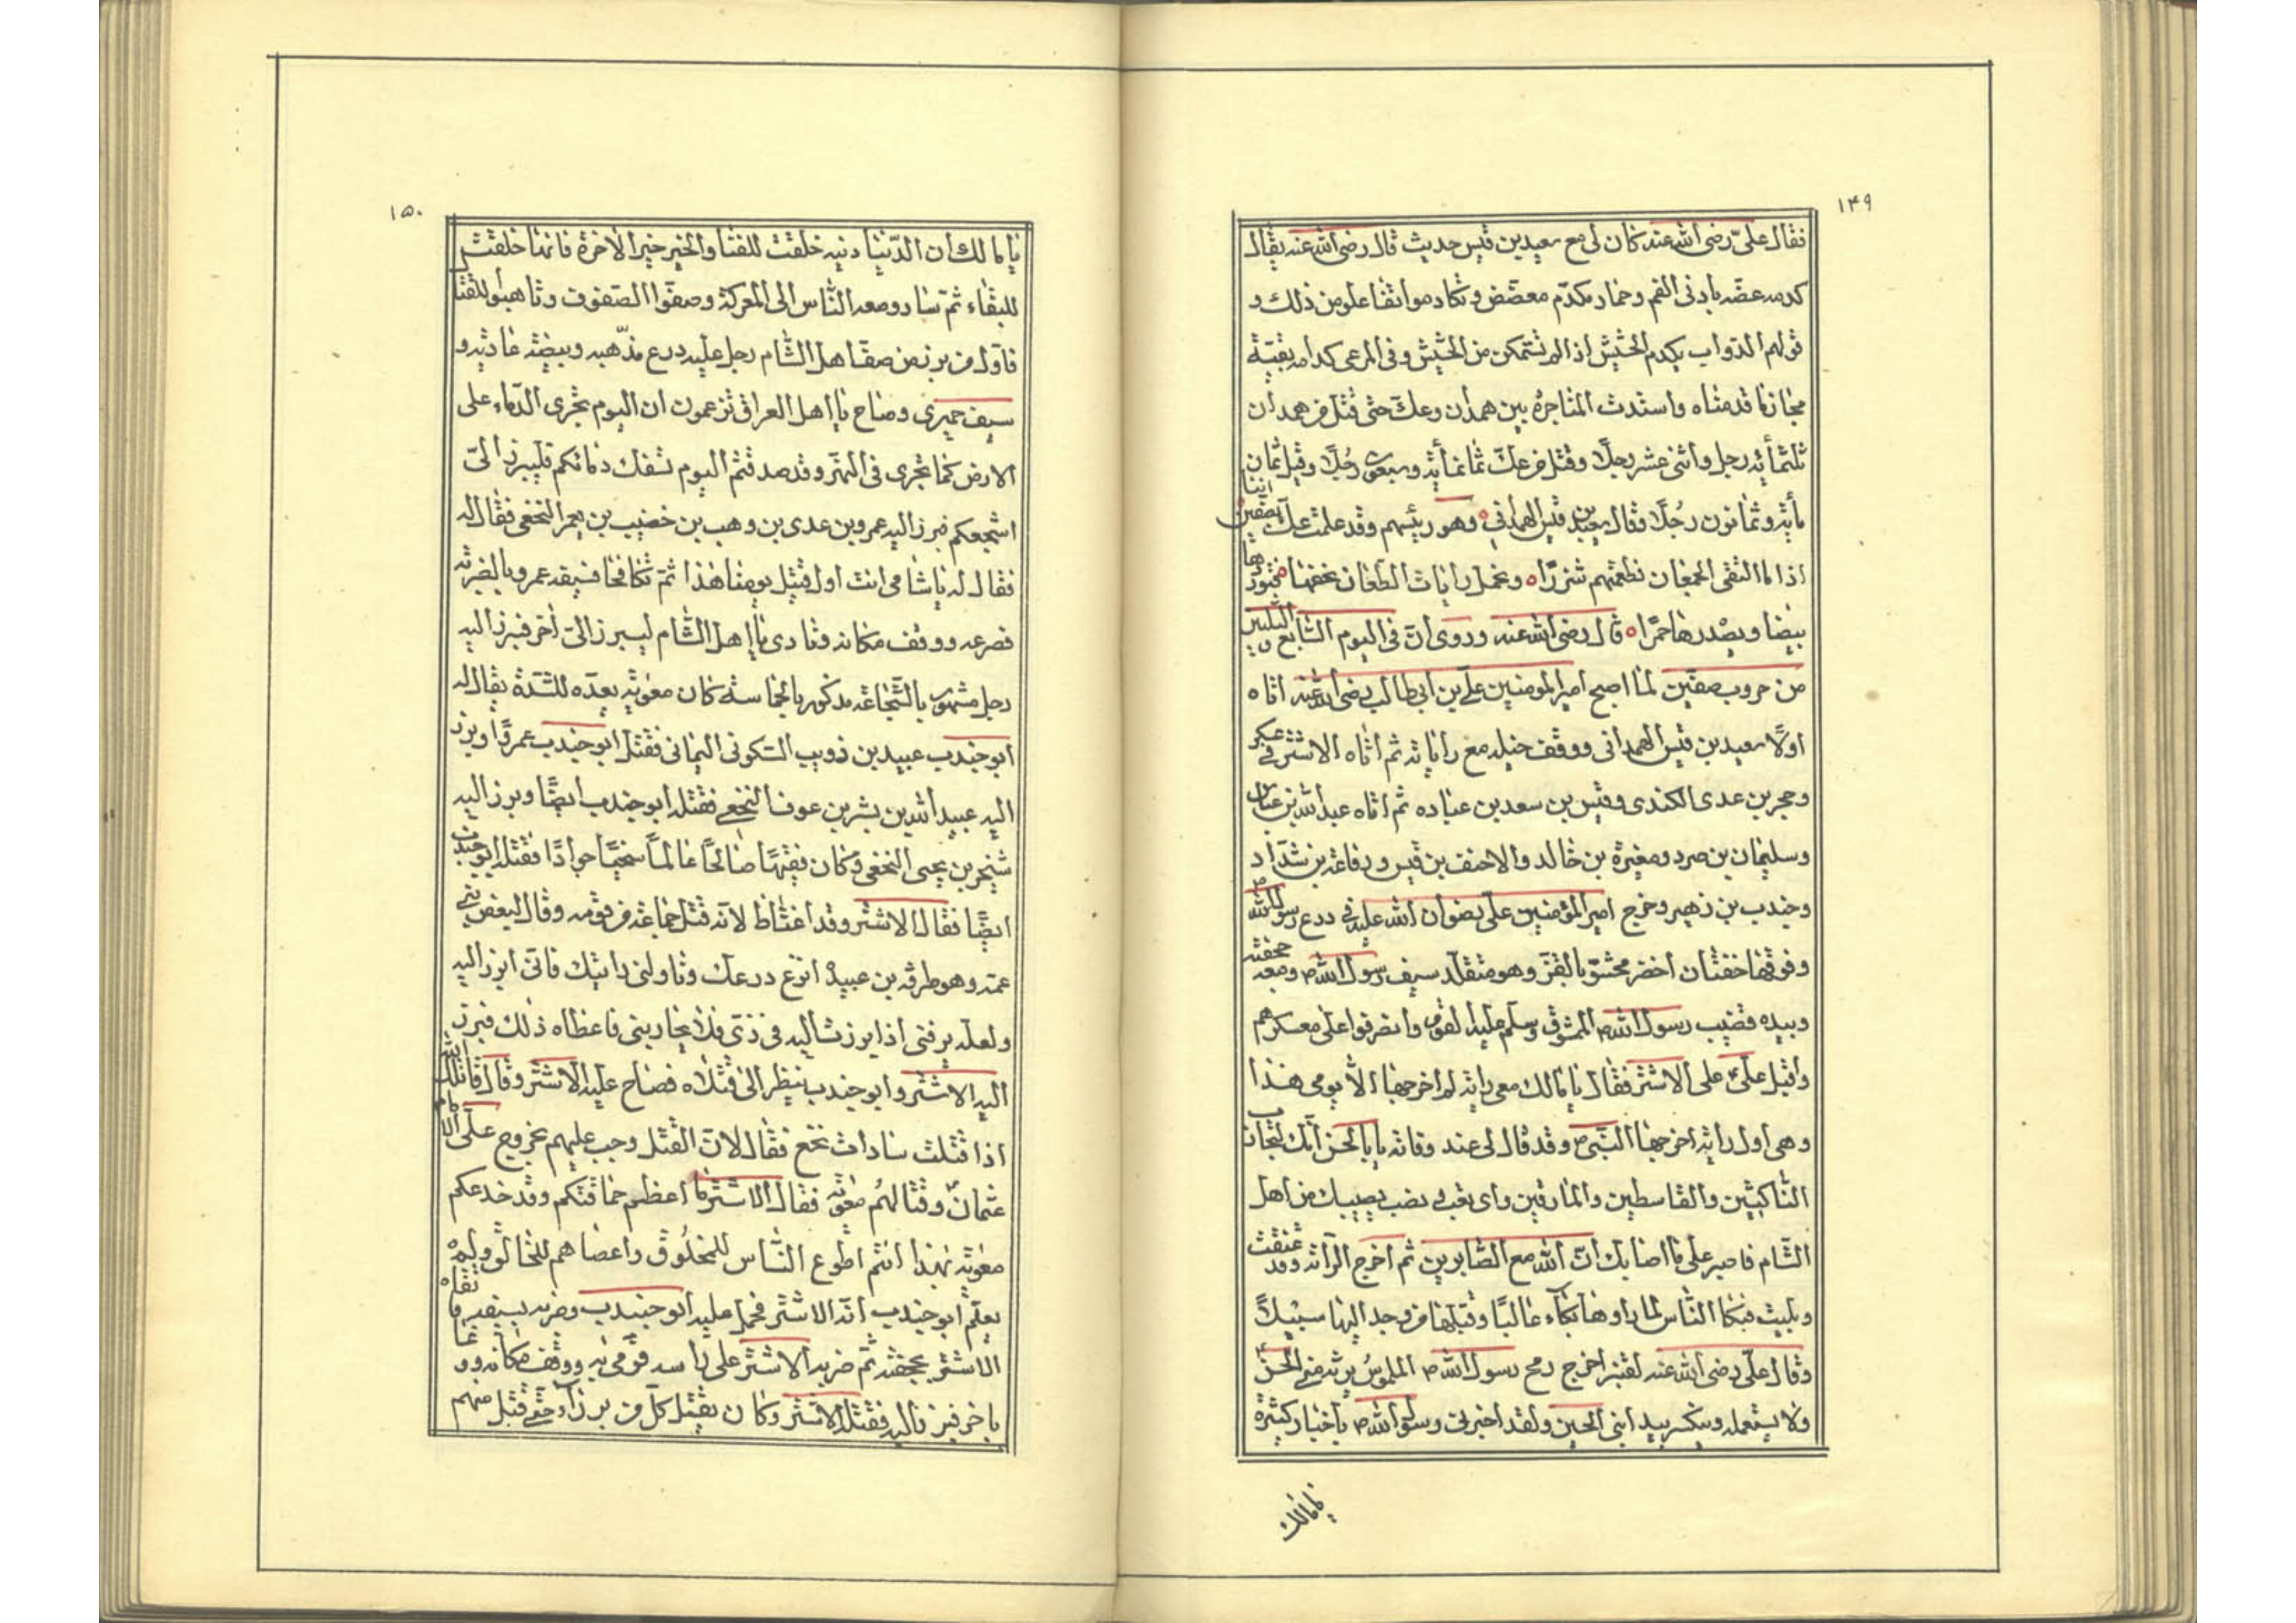 ١٤٩
فقال علىّ رضى الله عنه كان لى مع سعيد بن قيس حديث قال رضى الله عنه يقال
كدمه عضّه بادنى الفم وحمار مكدّم معضّض وتكادموا تفاعلو من ذلك و
قولهم الدّواب يكدم الحشيش اذا لم تتمكن من الحشيش وفى المرعى كدامه بقيّة
مجازها قدمناه واستدت المشاجرة بين همدان وعكّ حتّى قتل من همدان
ثلثمأية رجل واثنى عشر رجلًا وقتل من عكّ ثمانمأية وسبعون رجُلًا وقيل ثمان
مأية وثمانون رجُلًا فقال سعيد بن قيس الهمدانى وهو رئيسهم وقد علمت عكّ بصفّين اننا
اذا ما التقى الجمعان نطعنهم شزرًا ٥ ونحمل رايات الطّعان بحقها فنوردها
بيضا ويصْدرها حمرًا ٥ قال رضى الله عنه وروى انّ فى اليوم السّابع والثلثين
من حروب صفّين لمّا اصبح امير المومنين علىّ بن ابى طالب رضى الله عنه اتاه
اولًا سعيد بن قيس الهمدانى ووقف خيله مع راياته ثم اتاه الاشتر فى عسكر
وحجر بن عدى الكندى وقيس بن سعد بن عباده ثم اتاه عبد الله بن عباس
وسليمان بن صرد ومغيرة بن خالد والاحنف بن قيس ورفاعة بن شدّاد
وجندب بن زهير وخرج امير المؤمنين على رضوان الله عليه فى درع رسول الله ص
وفوقها خفتان اخضر محشوّ بالقزّ وهو متقلّد سيف رسول الله ص ومعه حجفته
وبيده قضيب رسول الله ص الممشوق وسلّم عليه القوم وانصرفوا على معسكرهم
واقبل علىّ على الاشتر فقال يا مالك معى راية لم اخرجها الّا يومى هذا
وهى اول راية اخرجها النّبى ص وقد قال لى عند وفاته يا ابا الحسن انّك لتحارب
النّاكثين والقاسطين والمارقين واى تعب نصب يصيبك من اهل
الشّام فاصبر على ما اصابك انّ الله مع الصّابرين ثم اخرج الرّاية وقد عتقت
وبليت فبكا النّاس لما راوها بكآء عاليًا وقبلها من وجد اليها سبيلًا
وقال علىّ رضى الله عنه لقنبر اخرج رمح رسول الله ص الملموس يرثه منى الحسن
ولا يستعمله وينكسر بيد ابنى الحسين ولقد اخبرنى رسول الله ص باخبار كثيرة
يا مالك
١٥٠
يا مالك ان الدّنيا دنيه خلقت للفنا والخير خير الاخرة فانها خلقت
للبقاء ثمّ سار ومعه النّاس الى المعركة وصفّوا الصّفوف وتاهبوا للقتا
فاوّل من برز من صف اهل الشّام رجل عليه درع مذّهبه وبيضة عاديّه و
سيف حميرى وصاح يا اهل العراق تزعمون ان اليوم تجرى الدّماء على
الارض كما تجرى فى النّهر وقد صدقتم اليوم نسفك دمائكم فليبرز الىّ
اشجعكم فبرز اليه عمرو بن عدى بن وهب بن خضيب بن يعمر النخعى فقال له
فقال له يا شامى انت اول قتيل يومنا هذا ثمّ تكافحا فسبقه عمرو بالضربة
فصرعه ووقف مكانه ونادى يا اهل الشّام ليبرز الىّ اخر فبرز اليه
رجل مشهور بالشّجاعة مذكور بالحماسة كان معوية يعدّه للشدّة يقال له
ابو جندب عبيد بن ذويب السّكونى اليمانى فقتل ابو جندب عمروًا وبرز
اليه عبيد الله بن بشر بن عوف النخعى فقتله ابو جندب ايضًا وبرز اليه
بن يحيى النخعى وكان فقيهًا صالحًا عالمًا سخيًّا جوادًا فقتله ابو جندب
ايضًا فقال الاشتر وقد اغتاظ لانّه قتل جماعة من قومه وقال لبعض بنى
عمّه وهو طرفة بن عبيد انزع درعك وناولنى رايتك فانّى ابرز اليه
ولعلّه يرفنى اذا برزت اليه فى زىّى فلا يحاربنى فاعطاه ذلك فبرز
اليه الاشتر وابو جندب ينظر الى قتلاه فصاح عليه الاشتر وقال قاتلك الله
اذا قتلت سادات نخع فقال لانّ القتل وجب عليهم بخروج على الامام
عثمان وقتالهُم معوية فقال الاشتر ما اعظم حماقتكم وقد خدعكم
معوية بهذا انتم اطوع النّاس للمخلُوق واعصاهم للخالق ولم
يعلم ابو جندب انّه الاشتر فحمل عليه ابو جندب وضربه بسيفه فاتقاه
الاشتر بحجفته ثمّ ضربه الاشتر على راسه فرمى به ووقف مكانه ودعا
باخر فبرز اليه فقتله الاشتر وكان يقتل كلّ من برز اليه حتّى قتل منهم